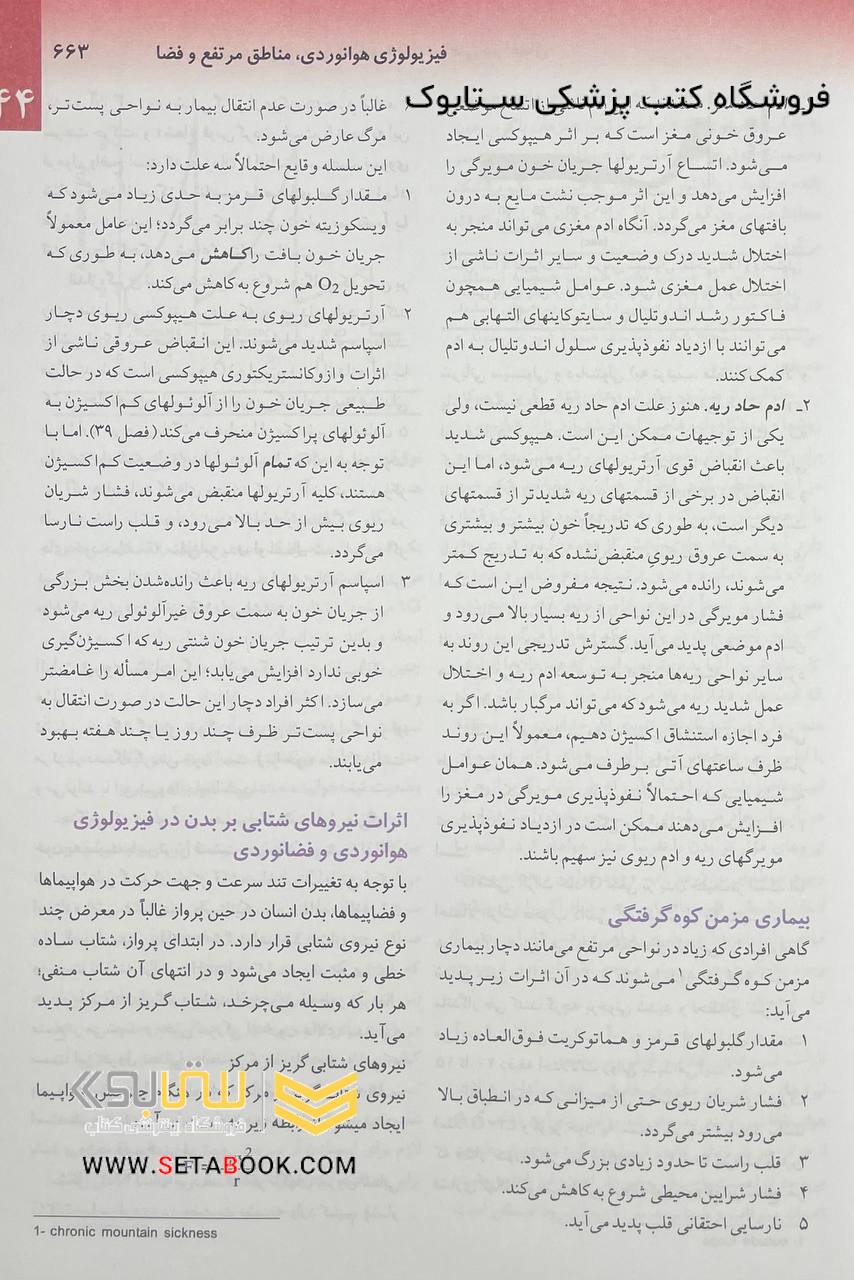 فیزیولوژی هوانوردی، مناطق مرتفع و فضا ۶۶۳
۴۴
فروشگاه کتب پزشکی ستابوک
عروق خونی مغز است که بر اثر هیپوکسی ایجاد
می‌شود. اتساع آرتریولها جریان خون مویرگی را
افزایش می‌دهد و این اثر موجب نشت مایع به درون
بافتهای مغز می‌گردد. آنگاه ادم مغزی می‌تواند منجر به
اختلال شدید درک وضعیت و سایر اثرات ناشی از
اختلال عمل مغزی شود. عوامل شیمیایی همچون
فاکتور رشد اندوتلیال و سایتوکاینهای التهابی هم
می‌توانند با ازدیاد نفوذپذیری سلول اندوتلیال به ادم
کمک کنند.
۲ـ ادم حاد ریه. هنوز علت ادم حاد ریه قطعی نیست، ولی
یکی از توجیهات ممکن این است. هیپوکسی شدید
باعث انقباض قوی آرتریولهای ریه می‌شود، اما این
انقباض در برخی از قسمتهای ریه شدیدتر از قسمتهای
دیگر است، به طوری که تدریجاً خون بیشتر و بیشتری
به سمت عروق ریویِ منقبض‌نشده که به تدریج کمتر
می‌شوند، رانده می‌شود. نتیجه مفروض این است که
فشار مویرگی در این نواحی از ریه بسیار بالا می‌رود و
ادم موضعی پدید می‌آید. گسترش تدریجی این روند به
سایر نواحی ریه‌ها منجر به توسعه ادم ریه و اختلال
عمل شدید ریه می‌شود که می‌تواند مرگبار باشد. اگر به
فرد اجازه استنشاق اکسیژن دهیم، معمولاً این روند
ظرف ساعتهای آتی برطرف می‌شود. همان عوامل
شیمیایی که احتمالاً نفوذپذیری مویرگی در مغز را
افزایش می‌دهند ممکن است در ازدیاد نفوذپذیری
مویرگهای ریه و ادم ریوی نیز سهیم باشند.
بیماری مزمن کوه گرفتگی
گاهی افرادی که زیاد در نواحی مرتفع می‌مانند دچار بیماری
مزمن کوه گرفتگی۱ می‌شوند که در آن اثرات زیر پدید
می‌آید:
۱ مقدار گلبولهای قرمز و هماتوکریت فوق‌العاده زیاد
می‌شود.
۲ فشار شریان ریوی حتی از میزانی که در انطباق بالا
می‌رود بیشتر می‌گردد.
۳ قلب راست تا حدود زیادی بزرگ می‌شود.
۴ فشار شرایین محیطی شروع به کاهش می‌کند.
۵ نارسایی احتقانی قلب پدید می‌آید.
۶ غالباً در صورت عدم انتقال بیمار به نواحی پست‌تر،
مرگ عارض می‌شود.
این سلسله وقایع احتمالاً سه علت دارد:
۱ مقدار گلبولهای قرمز به حدی زیاد می‌شود که
ویسکوزیته خون چند برابر می‌گردد؛ این عامل معمولاً
جریان خون بافت را کاهش می‌دهد، به طوری که
تحویل O2 هم شروع به کاهش می‌کند.
۲ آرتریولهای ریوی به علت هیپوکسی ریوی دچار
اسپاسم شدید می‌شوند. این انقباض عروقی ناشی از
اثرات وازوکانستریکتوری هیپوکسی است که در حالت
طبیعی جریان خون را از آلوئولهای کم‌اکسیژن به
آلوئولهای پراکسیژن منحرف می‌کند (فصل ۳۹). اما با
توجه به این که تمام آلوئولها در وضعیت کم‌اکسیژن
هستند، کلیه آرتریولها منقبض می‌شوند، فشار شریان
ریوی بیش از حد بالا می‌رود، و قلب راست نارسا
می‌گردد.
۳ اسپاسم آرتریولهای ریه باعث رانده‌شدن بخش بزرگی
از جریان خون به سمت عروق غیرآلوئولی ریه می‌شود
و بدین ترتیب جریان خون شنتی ریه که اکسیژن‌گیری
خوبی ندارد افزایش می‌یابد؛ این امر مسأله را غامضتر
می‌سازد. اکثر افراد دچار این حالت در صورت انتقال به
نواحی پست‌تر ظرف چند روز یا چند هفته بهبود
می‌یابند.
اثرات نیروهای شتابی بر بدن در فیزیولوژی
هوانوردی و فضانوردی
با توجه به تغییرات تند سرعت و جهت حرکت در هواپیماها
و فضاپیماها، بدن انسان در حین پرواز غالباً در معرض چند
نوع نیروی شتابی قرار دارد. در ابتدای پرواز، شتاب ساده
خطی و مثبت ایجاد می‌شود و در انتهای آن شتاب منفی؛
هر بار که وسیله می‌چرخد، شتاب گریز از مرکز پدید
می‌آید.
نیروهای شتابی گریز از مرکز
نیروی
ایجاد میشود
ستابوک
فروشگاه اینترنتی کتاب
WWW.SETABOOK.COM
r
1- chronic mountain sickness